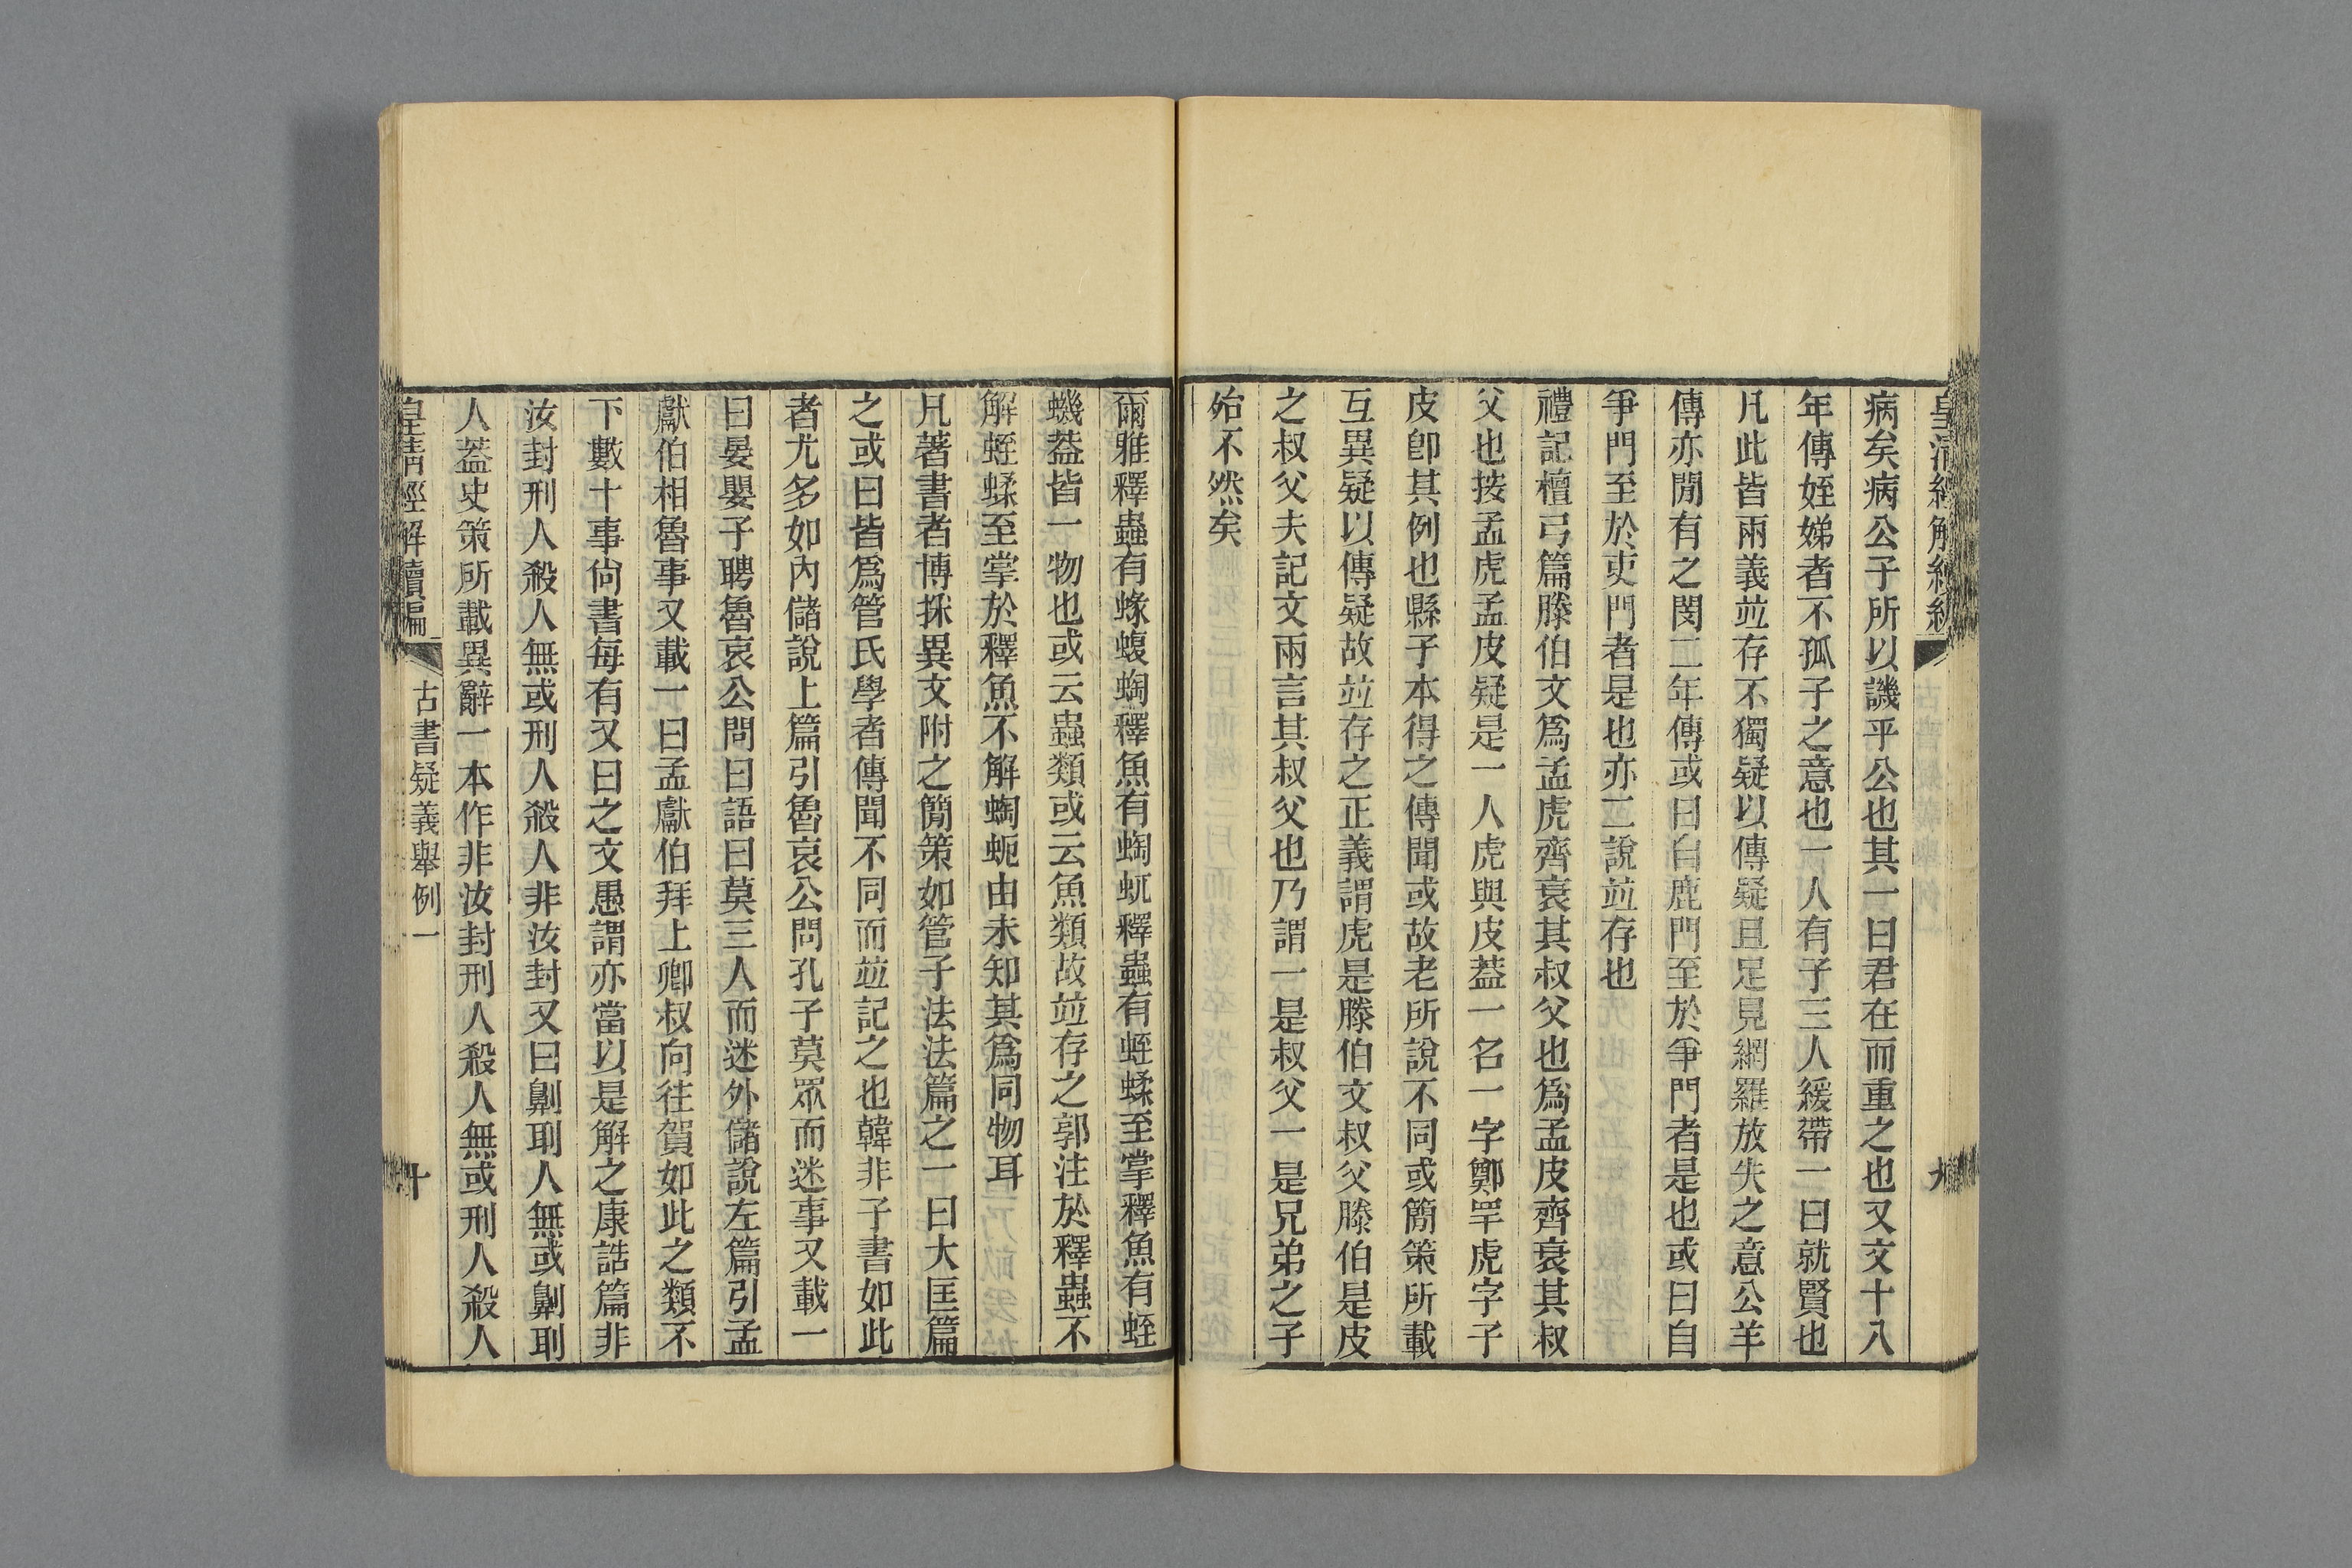 皇清經解續編
九
病矣病公子所以譏乎公也其一曰君在而重之也又文十八
年傳姪娣者不孤子之意也一人有子三人緩帶一曰就賢也
凡此皆兩義竝存不獨疑以傳疑且足見網羅放失之意公羊
傳亦閒有之閔二年傳或曰自鹿門至於爭門者是也或曰自
爭門至於吏門者是也亦二說竝存也
禮記檀弓篇滕伯文爲孟虎齊衰其叔父也爲孟皮齊衰其叔
父也按孟虎孟皮疑是一人虎與皮葢一名一字鄭罕虎字子
皮卽其例也縣子本得之傳聞或故老所說不同或簡策所載
互異疑以傳疑故竝存之正義謂虎是滕伯文叔父滕伯是皮
之叔父夫記文兩言其叔父也乃謂一是叔父一是兄弟之子
殆不然矣
爾雅釋蟲有蝝蝮蜪釋魚有蜪蚅釋蟲有蛭蝚至掌釋魚有蛭
蟣葢皆一物也或云蟲類或云魚類故竝存之郭注於釋蟲不
解蛭蝚至掌於釋魚不解蜪蚅由未知其爲同物耳
凡著書者博採異文附之簡策如管子法法篇之一曰大匡篇
之或曰皆爲管氏學者傳聞不同而竝記之也韓非子書如此
者尤多如內儲說上篇引魯哀公問孔子莫眾而迷事又載一
曰晏嬰子聘魯哀公問曰語曰莫三人而迷外儲說左篇引孟
獻伯相魯事又載一曰孟獻伯拜上卿叔向往賀如此之類不
下數十事尙書每有又曰之文愚謂亦當以是解之康誥篇非
汝封刑人殺人無或刑人殺人非汝封又曰劓刵人無或劓刵
人葢史策所載異辭一本作非汝封刑人殺人無或刑人殺人
皇清經解續編
古書疑義舉例一
十